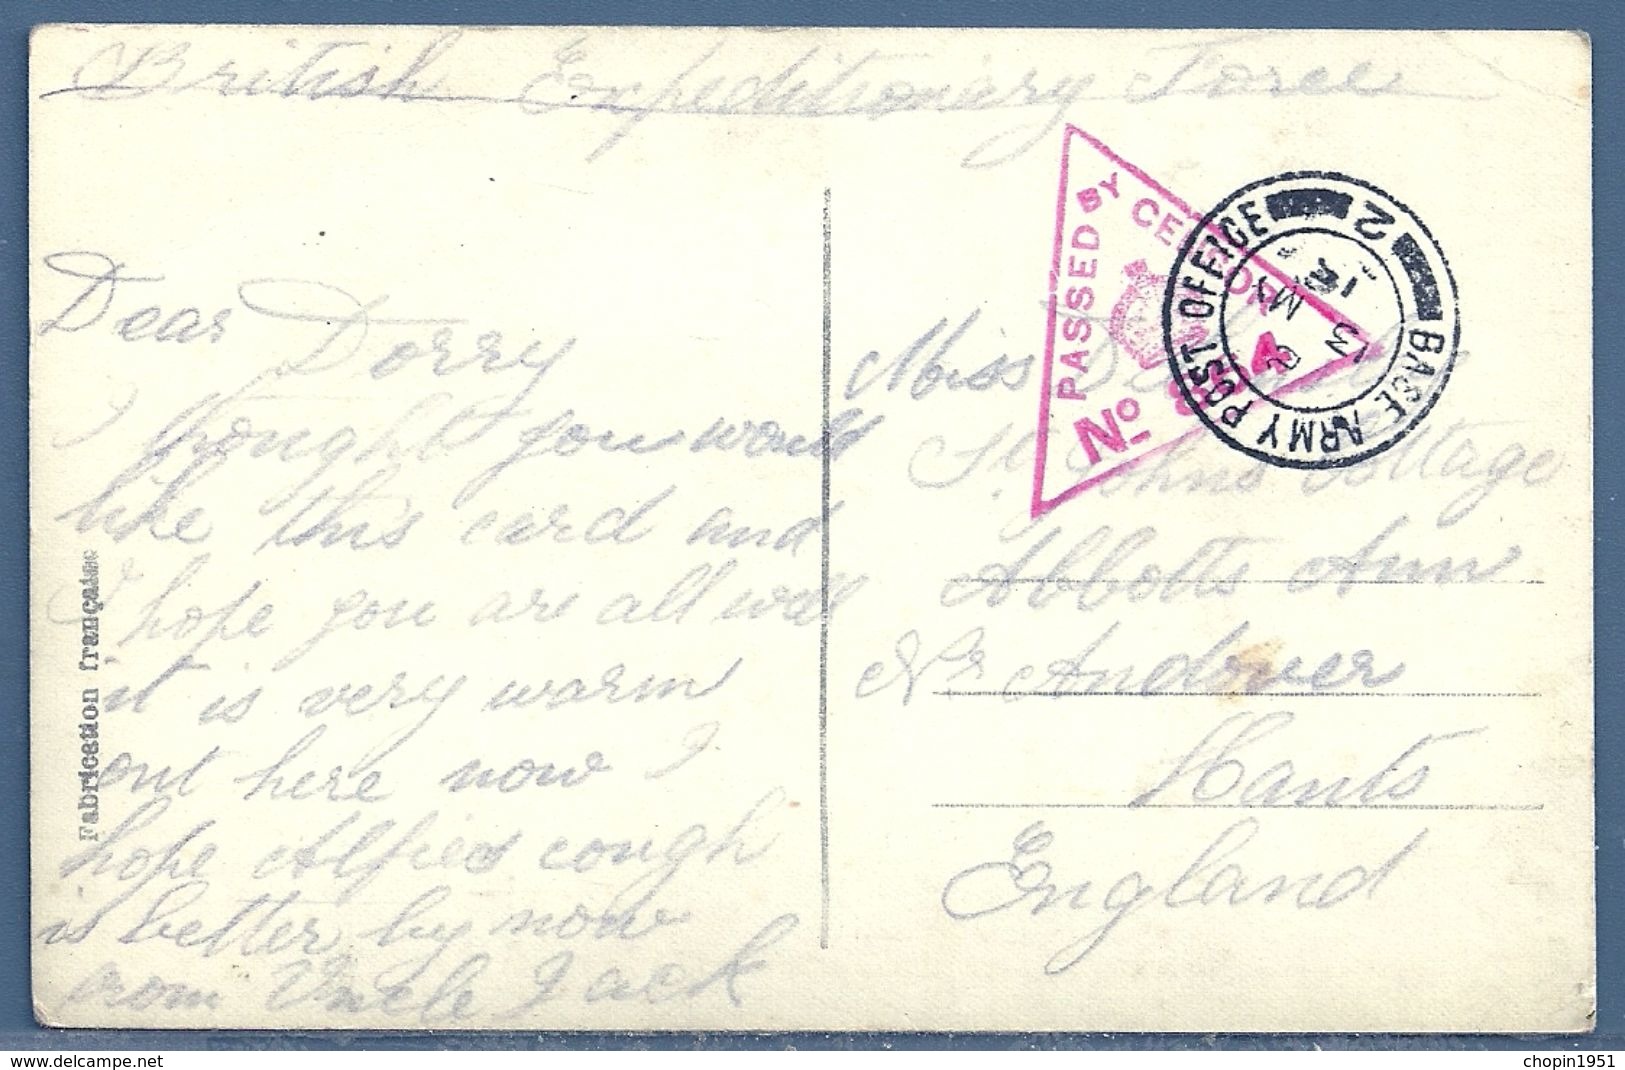 British Expeditionary Force
Dear Dorry
I hought you would
like this card and
I hope you are all well
it is very warm
out here now I
hope Alfies cough
is better by now
from Uncle Jack
Fabrication française
PASSED BY CENSOR
No
ARMY POST OFFICE
BASE
2
MY
Miss
St Johns Cottage
Abbotts Ann
Nr Andover
Hants
England
chopin1951